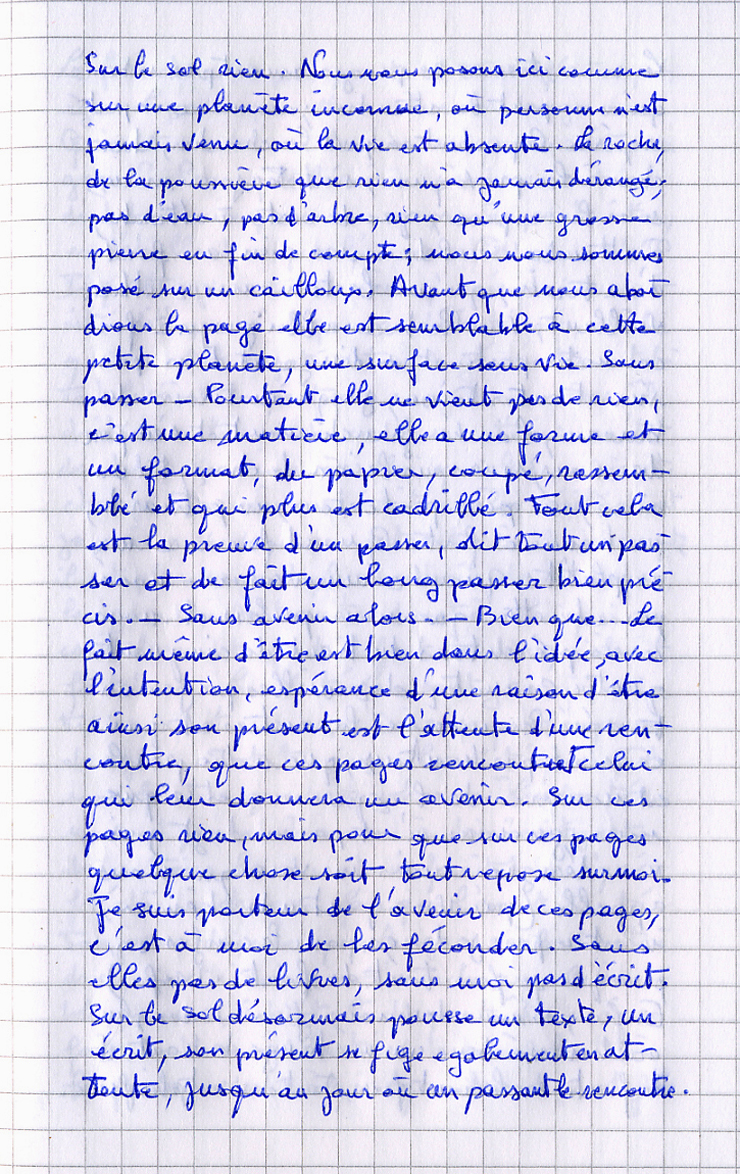 Sur le sol rien. Nous nous posons ici comme
sur une planète inconnue, où personne n'est
jamais venu, où la vie est absente. La roche,
de la poussière que rien n'a jamais dérangé;
pas d'eau, pas d'arbre, rien qu'une grosse
pierre en fin de compte; nous nous sommes
posé sur un cailloux. Avant que nous abor
dions la page elle est semblable à cette
petite planète, une surface sans vie. Sans
passer – Pourtant elle ne vient pas de rien,
c'est une matière, elle a une forme et
un format, du papier, coupé, rassem-
blé et qui plus est cadrillé. Tout cela
est la preuve d'un passer, dit tout un pas
ser et de fait un long passer bien pré
cis. – Sans avenir alors. – Bien que... Le
fait même d'être est bien dans l'idée, avec
l'intention, espérance d'une raison d'être
ainsi son présent est l'attente d'une ren-
contre, que ces pages rencontrent celui
qui leur donnera un avenir. Sur ces
pages rien, mais pour que sur ces pages
quelque chose soit, tout repose sur moi.
Je suis porteur de l'avenir de ces pages,
c'est à moi de les féconder. Sans
elles pas de livres, sans moi pas d'écrit.
Sur le sol désormais pousse un texte, un
écrit, son présent se fige egalement en at-
tente, jusqu'au jour où un passant le rencontre.